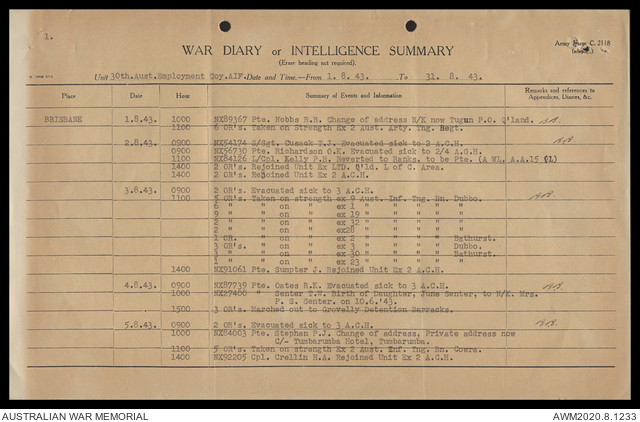 1.
WAR DIARY or INTELLIGENCE SUMMARY
(Erase heading not required).
Army Form C. 2118
Unit 30th.Aust.Employment Coy.AIF. Date and Time.—From 1. 8. 43. To 31. 8. 43.
Place Date Hour Summary of Events and Information Remarks and references to Appendices, Diaries, &c.
BRISBANE 1.8.43. 1000 NX89367 Pte. Nobbs R.B. Change of address N/K now Tugun P.O. Q'land.
1100 6 OR's. Taken on Strength Ex 2 Aust. Arty. Tng. Regt.
2.8.43. 0900 NX84174 S/Sgt. Cusack T.J. Evacuated sick to 2 A.C.H.
0900 NX56730 Pte. Richardson O.K. Evacuated sick to 2/4 A.G.H.
1100 NX84126 L/Cpl. Kelly P.B. Reverted to Ranks. to be Pte. (A WL. A.A.15 (L)
1400 2 OR's. Rejoined Unit Ex LTD. Q'ld. L of C. Area.
1400 2 OR's. Rejoined Unit Ex 2 A.C.H.
3.8.43. 0900 2 OR's. Evacuated sick to 3 A.C.H.
1100 5 OR's. Taken on strength ex 9 Aust. Inf. Tng. Bn. Dubbo.
6 " " on " ex 1 " " " " "
9 " " on " ex 19 " " " " "
2 " " on " ex 32 " " " " "
2 " " on " ex28 " " " " "
1 OR. " on " ex 2 " " " " Bathurst.
3 OR's. " on " ex 3 " " " " Dubbo.
3 " " on " ex 30 " " " " Bathurst.
1 " " on " ex 23 " " " " "
1400 NX91061 Pte. Sumpter J. Rejoined Unit Ex 2 A.C.H.
4.8.43. 0900 NX87739 Pte. Oates R.K. Evacuated sick to 3 A.C.H.
1000 NX27400 " Senter T.W. Birth of Daughter, June Senter, to N/K. Mrs.
P. S. Senter. on 10.6.'43.
1500 3 OR's. Marched out to Grovelly Detention Barracks.
5.8.43. 0900 2 OR's. Evacuated sick to 3 A.C.H.
1000 NX84003 Pte. Stephen P.J. Change of address, Private address now
C/- Tumbarumba Hotel, Tumbarumba.
1100 5 OR's. Taken on strength Ex 2 Aust. Inf. Tng. Bn. Cowra.
1400 NX92205 Cpl. Crellin H.A. Rejoined Unit Ex 2 A.C.H.
AUSTRALIAN WAR MEMORIAL AWM2020.8.1233